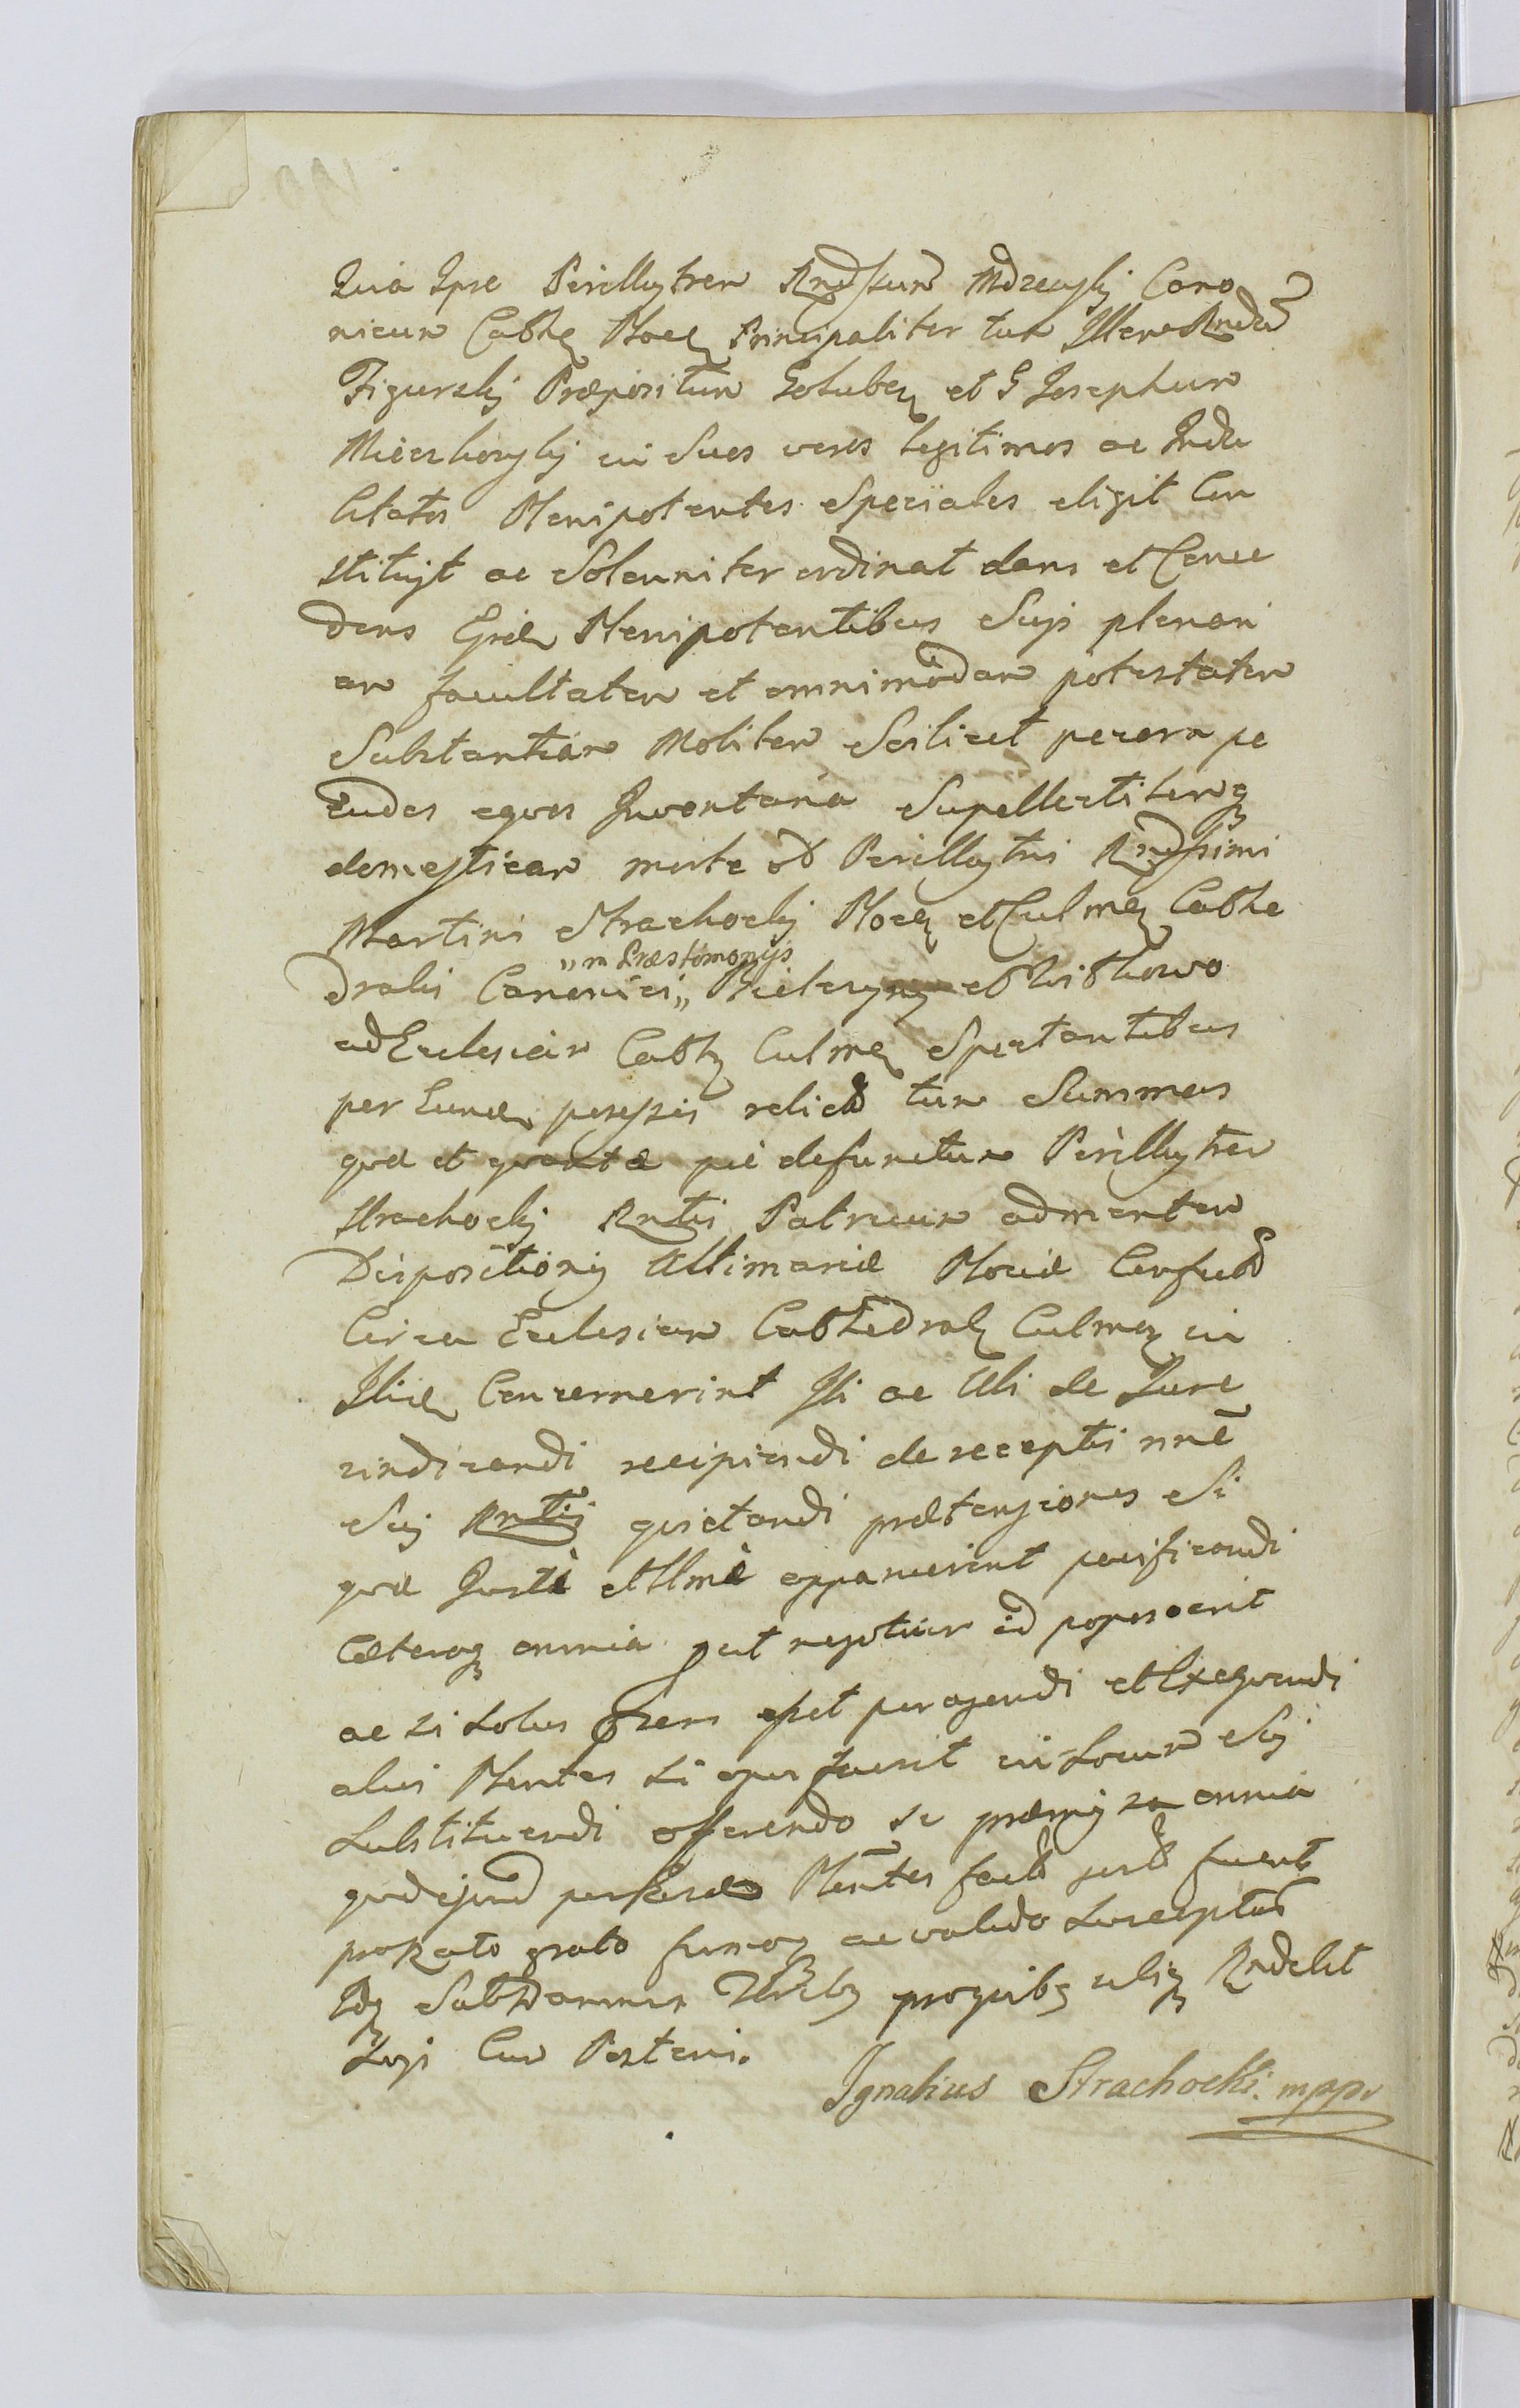 Quia Ipse Perillustrem Rndssum Mdzewskj Cano
nicum Cathę Plocę Principaliter tum Illrem Rndum
Figurskj Præpositum Golubeņ et G Josephum
Mierzkowskj in Suos veros legitimos ac Indu
bitatos Plenipotentes Speciales eligit Con
stituit ac Solenniter ordinat dans et Conce
dens Ejsdem Plenipotentibus Suis plenari
am facultatem et omnimodam potestatem
Substantiam Mobilem Scilicet pecora pe
cudes eqvos Inventaria Supellectilemq
domesticam morte olim Perillustris Rndssimi
Martini Strachockj Plocę et Culmeņ Cathe
dralis Canonici,, ,,in Præstimonijs et Witkowo
ad Ecclesiam Cathę Culmeņ Spectantibus
per Eundem possessis relictam tum Summas
qvæ et qvantæ piè defunctum Perillustrem
Strachockj Rntis Patruum ad mentem
Dispositionis Ultimariæ Plociæ Confectæ
Circa Ecclesiam Cathedralę Culmeņ in
Illi ac Ubi de Jure
vindicandi recipiendi de receptis nnē
Sui Rntis qvietandi prætensiones Si
qvæ Justè et Ltmè apparuerint pacificandi
Cæteraq omnia put negotium id poposcerit
ac si solus Prns esset peragendi et Exeqvendi
alios Plentes si opus fuerit in Locum Sui
Substituendi offerendo se præmissa omnia
qvæ ejusmodi Plentes facta fuerint
pro rato grato firmoq ac valido suscepturum
Idq Sub Damnis
Suis Cum Posteris.
Ignatius Strachocki. mppr